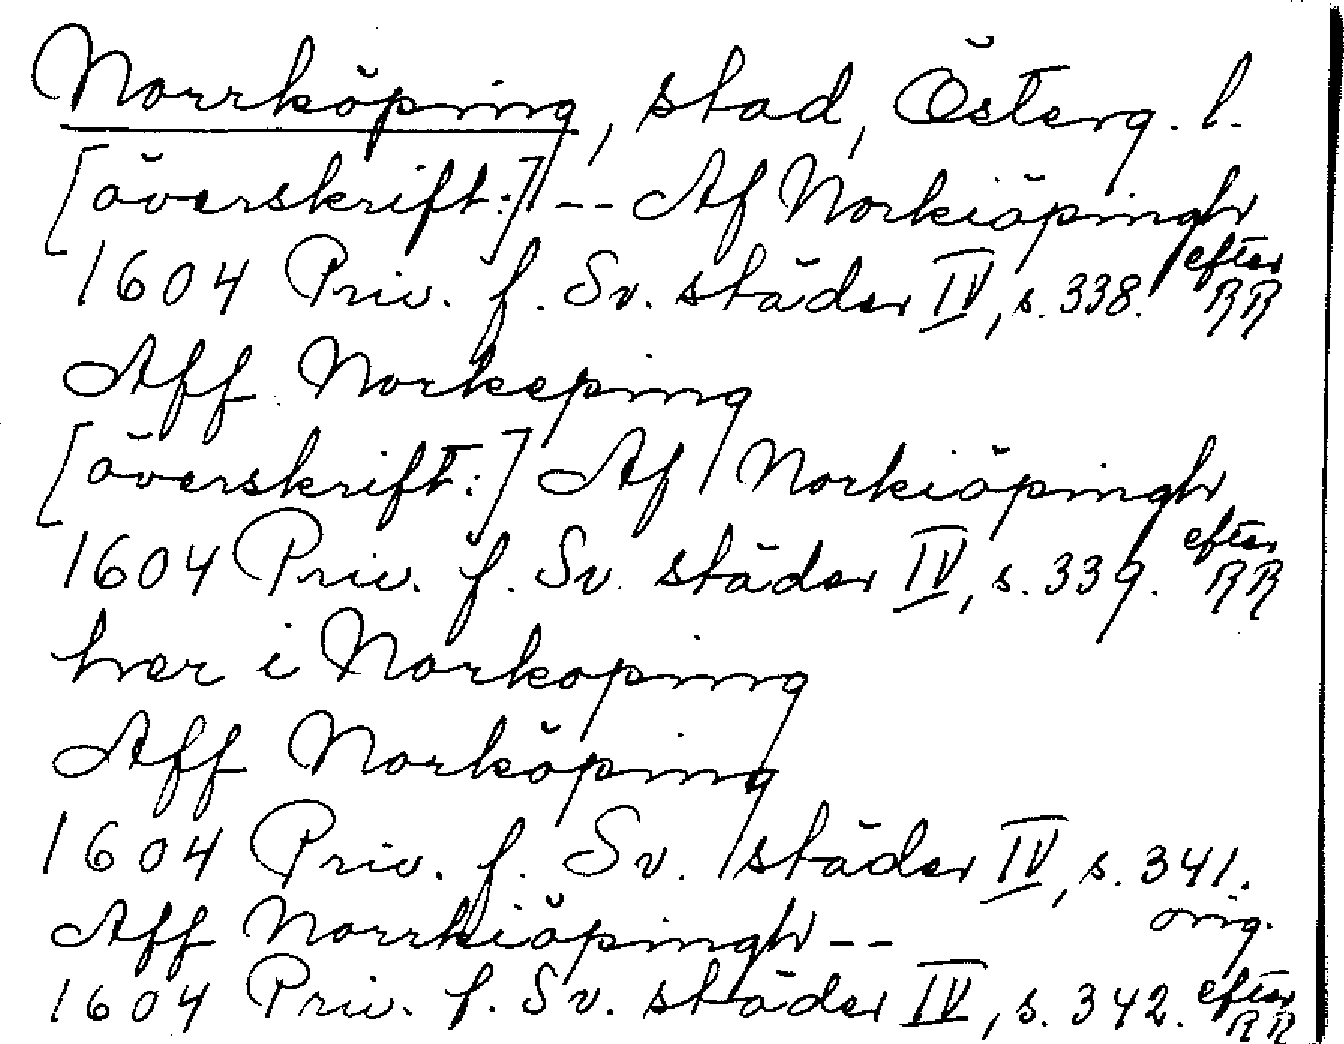 Norrköping, stad, Österg. l.
[överskrift:] -- Af Norkiöpingh
1604 Priv. f. Sv. städer IV, s. 338. efter RR
Aff Norkeping
[överskrift:] Af Norkiöpingh
1604 Priv. f. Sv. städer IV, s. 339. efter RR
hver i Norkoping
Aff Norköping
1604 Priv. f. Sv. städer IV, s. 341. orig.
Aff Norrkiöpingh --
1604 Priv. f. Sv. städer IV, s. 342. efter RR